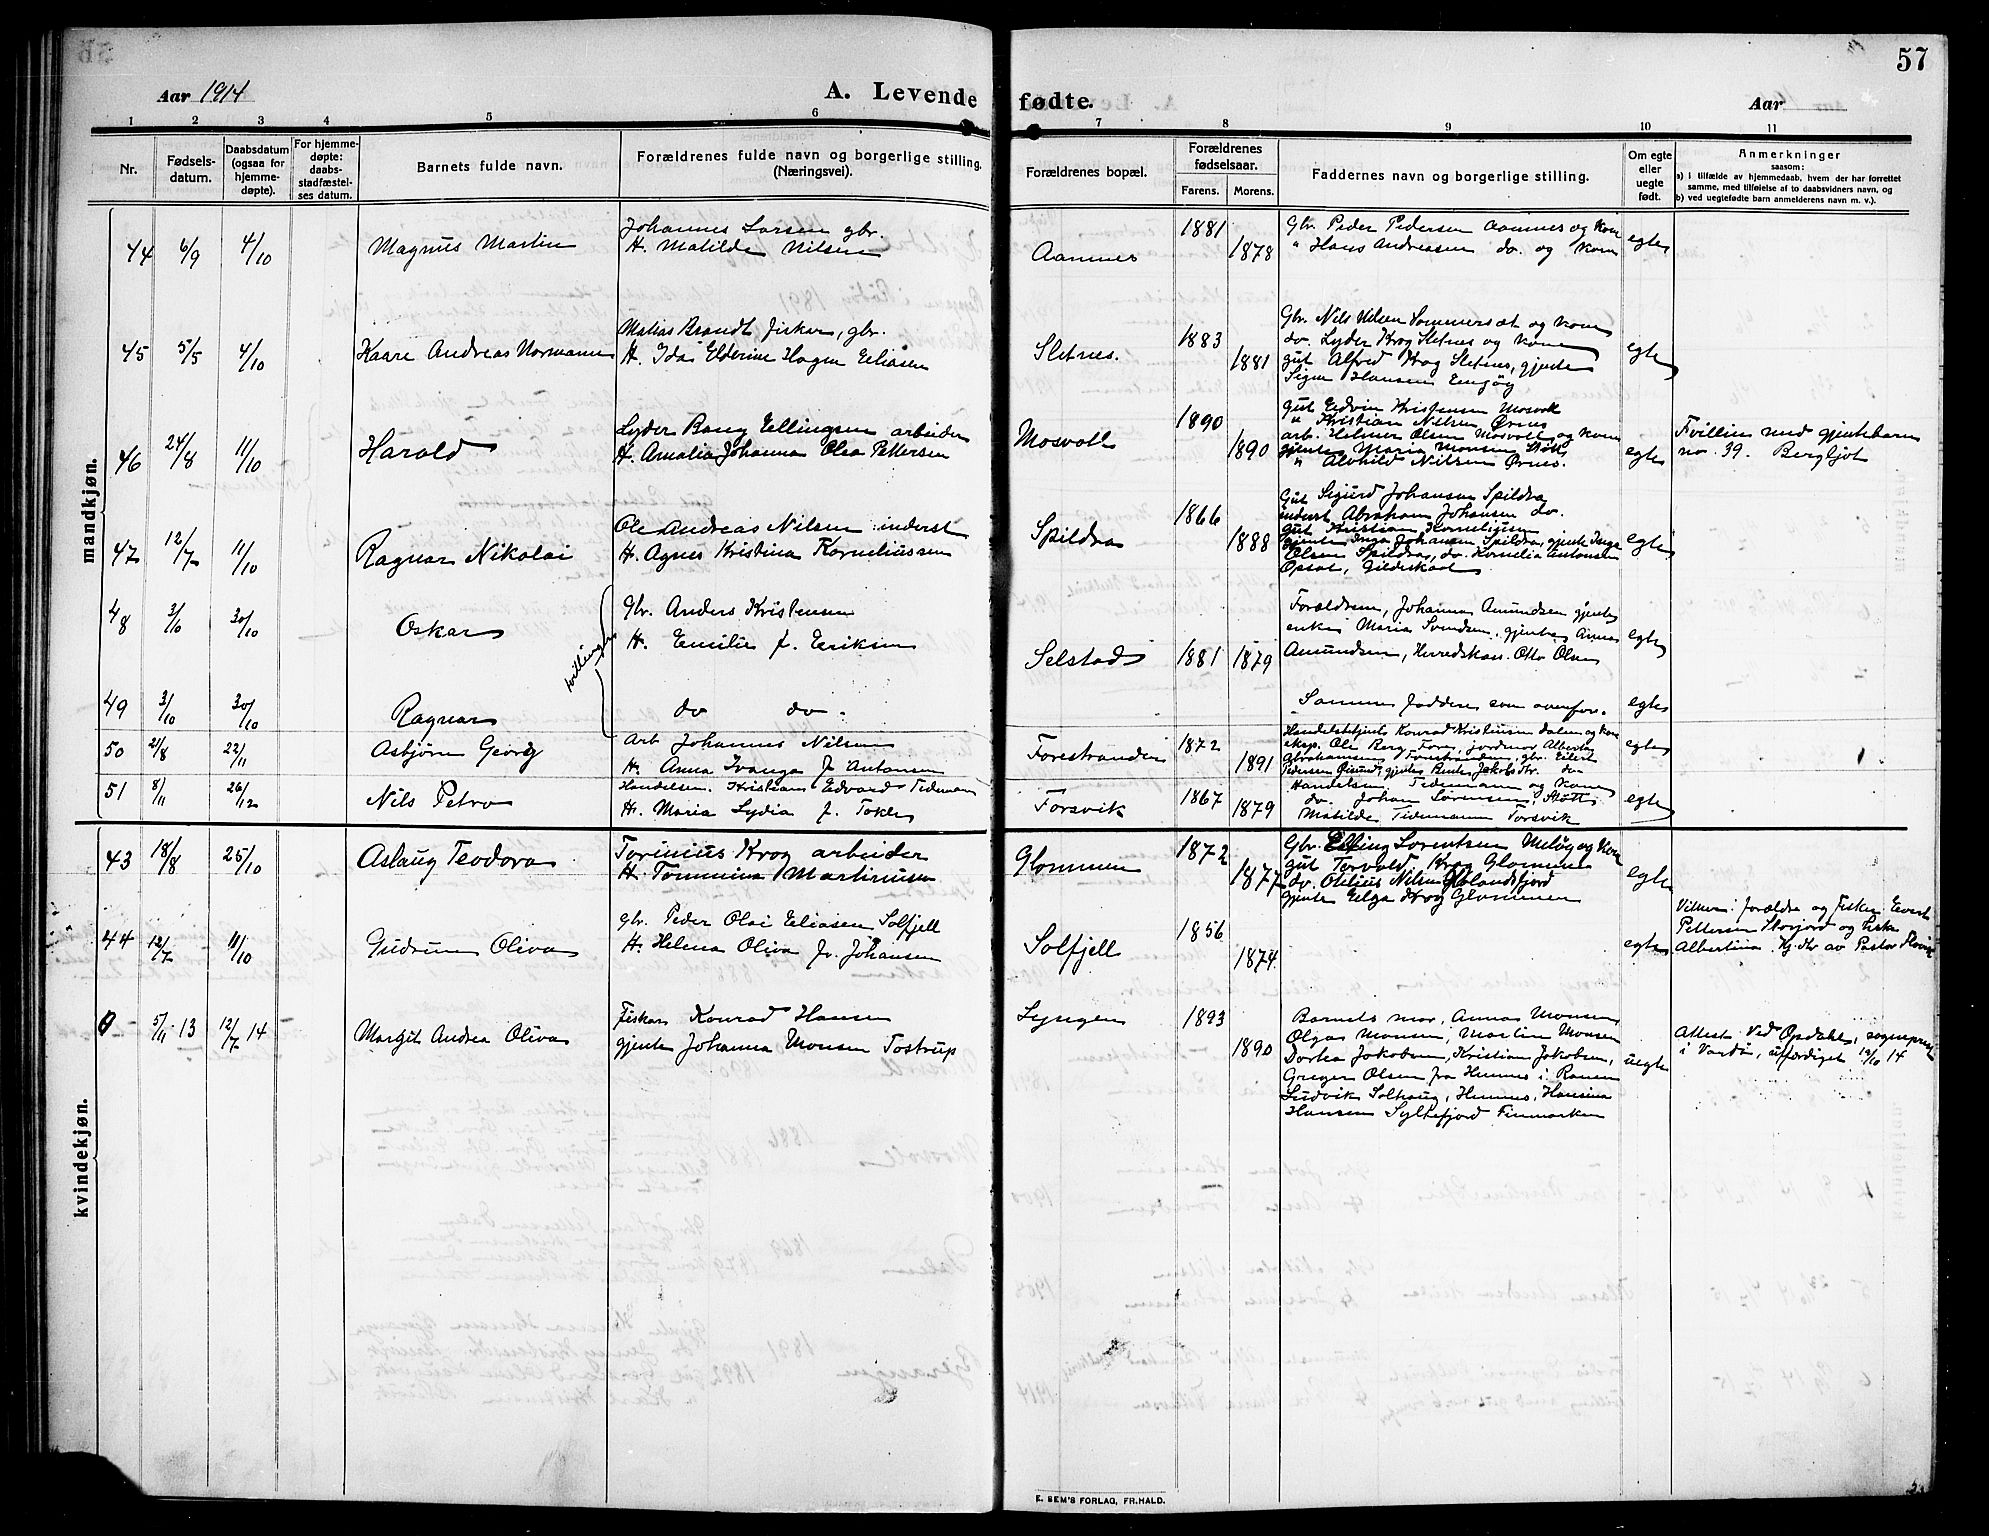 57
Aar 1914
A. Levende fødte.
Aar
1 2 3 4 5 6 7 8 9 10 11
Nr.
Fødselsdatum.
Daabsdatum (ogsaa for hjemmedøpte).
For hjemmedøpte: daabsstadfæstelses datum.
Barnets fulde navn.
Forældrenes fulde navn og borgerlige stilling. (Næringsvei).
Forældrenes bopæl.
Forældrenes fødselsaar.
Farens. Morens.
Faddernes navn og borgerlige stilling.
Om egte eller uegte født.
Anmerkninger
saasom:
a) i tilfælde av hjemmedaab, hvem der har forrettet samme, med tilføielse af to daabsvidners navn, og
b) ved uegtefødte barn anmelderens navn m. v.).
mandkjøn.
44 6/9 4/10 Magnus Martin
Johannes Larsen gbr.
H. Matilde Nilsen
Aamnes 1881 1878
Gbr. Peder Pedersen Aamnes og kone
" Hans Andreasen do. og kone
egte
45 5/5 4/10 Kaare Andreas Normann
Matias Brandt fisker, gbr.
H. Ida Elderine Hagen Eliasen
Sletnes. 1883 1881
Gbr. Nils Nilsen Sommersæt og kone
do. Lyder Krog Sletnes og kone
gut Alfred Krog Sletnes, gjente
Signe Hansen Engøy
egte
46 24/8 11/10 Harald
Lyder Bang Ellingsen arbeider
H. Amalia Johanna Olea Pettersen
Mosvoll 1890 1890
Gut Edvin Kristensen Mosvoll
" Kristian Nilsen Ørnes
arb. Helmer Olsen Mosvoll og kone
gjente Maria Monsen Støtt
" Alvhild Nilsen Ørnes.
egte
Tvilling med gjentebarn
no. 39. Bergljot
47 12/7 11/10 Ragnar Nikolai
Ole Andreas Nilsen inderst
H. Agnes Kristina Korneliussen
Spildra 1866 1888
Gut Sigurd Johansen Spildra
inderst Abraham Johansen do.
gut Kristian Korneliussen
gjente Inga Johansen Spildra, gjente Inga
Olsen Spildra, do. Kornelia Antonsen
Opsal, Gildeskaal
egte
48 3/10 30/10 Oskar
tvillinger
Gbr. Anders Kristensen
H. Emilie f. Eriksen
Selstad 1881 1879
Forældrene, Johanna Amundsen gjente
enke Maria Svendsen, gjente Anna
Amundsen, Herredskass. Otto Olsen
egte
49 3/10 30/10 Ragnar
do do.
Samme faddere som ovenfor.
egte
50 21/8 22/11 Asbjørn Georg
Arb Johannes Nilsen
H. Anna Ivanga f Antonsen
Forestranden 1872 1891
Handelsbetjent Konrad Kristensen Dalen og kone
eksp. Ole Berg Forø, jordmor Alberta
Abrahamsen Forestranden, gbr. Eilert
Pedersen
egte
51 8/11 26/12 Nils Petro
Handelsm. Kristian Edvard Tidemann
H. Maria Lydia f. Tokle
Forsvik 1867 1879
Handelsm. Tidemann og kone
do. Johan Sørensen, Støtt
Matilde Tidemann Forsvik
egte
kvindekjøn.
43 18/8 25/10 Aslaug Teodora
Torinius Krog arbeider
H. Tommina Martinusen
Glommen 1872 1877
Gbr. Elling Lorentsen Meløy og kone
gut Torvald Krog Glommen
do. Otelius Nilsen Holandsfjord
gjente Helga Krog Glommen
egte
44 12/7 11/10 Gudrun Oliva
gbr. Peder Olai Eliasen Solfjell
H. Helena Oliva f. Johansen
Solfjell 1856 1874
egte
Vidner: forældre og Fisker Evert
Pettersen Skorfjord og Fiske
Albertina Kj.dr av Pastor
0 5/11 13 12/7 14 Margit Andrea Oliva
Fisker Konrad Hansen
gjente Johanna Monsen Tostrup
Lyngen 1893 1890
Barnets mor, Anna Monsen
Olga Monsen, Martin Monsen
Dortea Jakobsen, Kristian Jakobsen,
Greger Olsen fra Hemnes i Ranen
Ludvik Solhaug, Hemnes, Hansina
Hansen Syltefjord Finmarken
uegte
Attest ved Opdahl, sogneprest
i Vardø, utfærdiget 19/10 14
E. SEM'S FORLAG, FR.HALD.